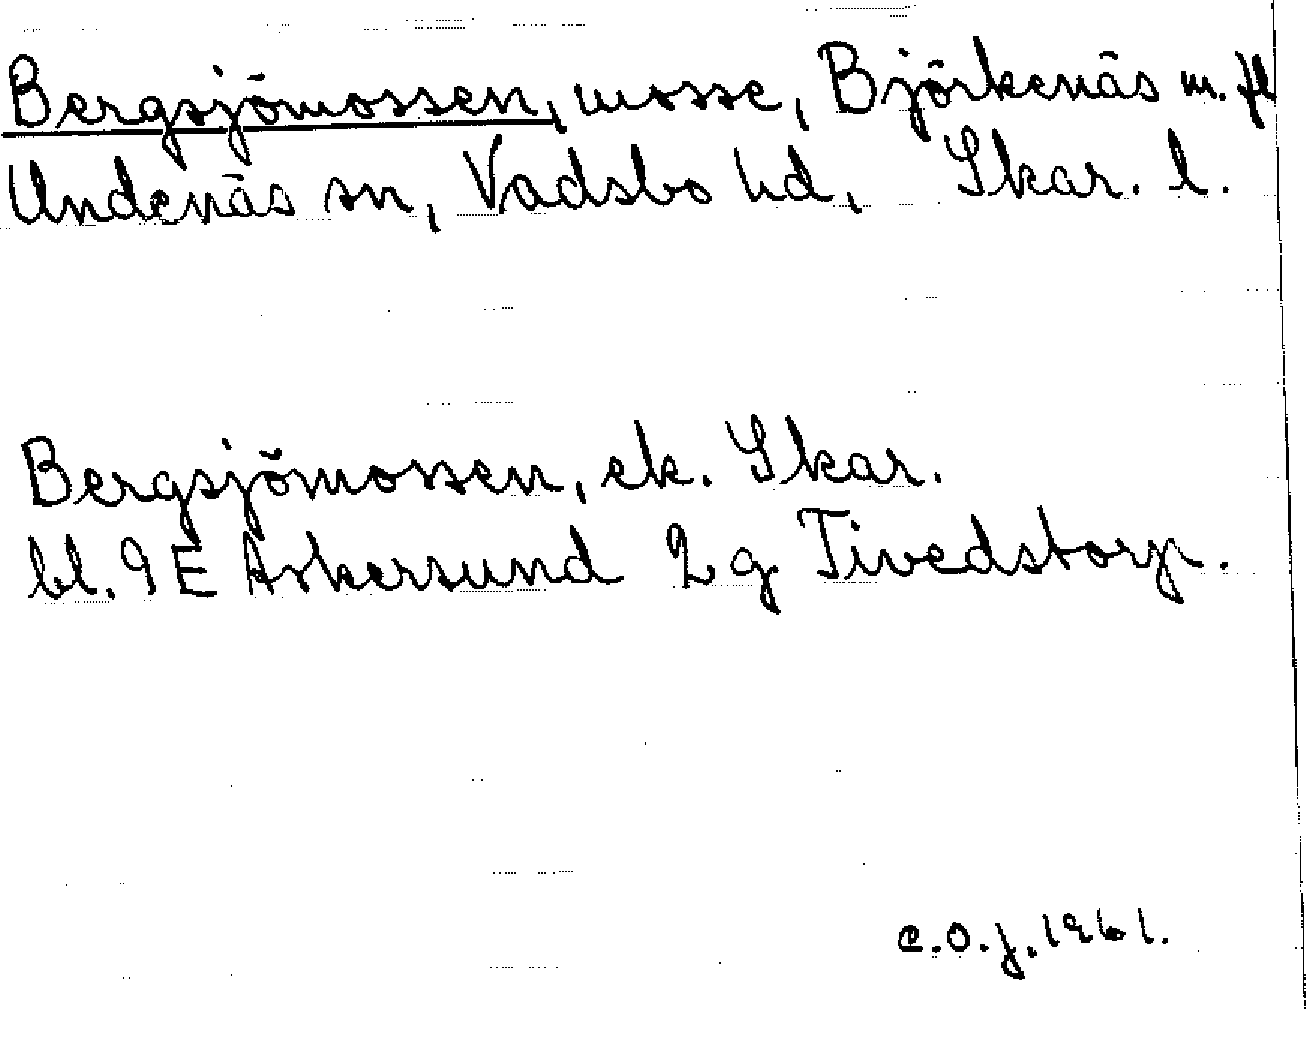 Bergsjömossen, mosse, Björkenäs m. fl
Undenäs sn, Vadsbo hd, Skar. l.
Bergsjömossen, ek. Skar.
bl. 9E Askersund 2g Tivedstorp.
C.O.J. 1961.